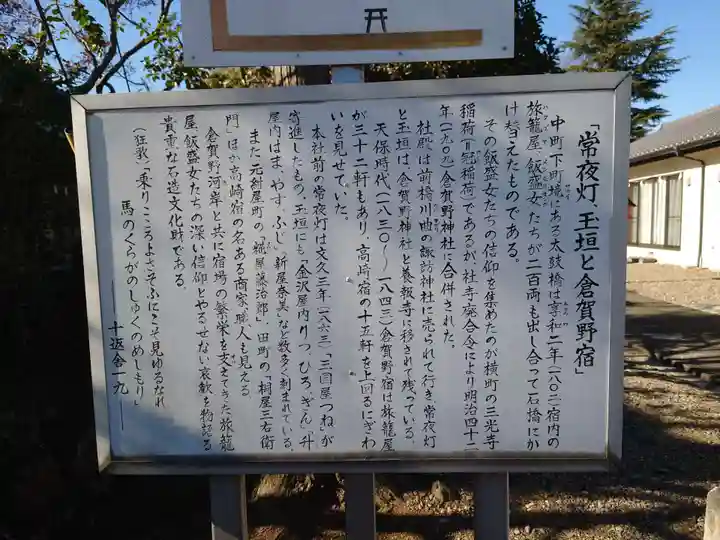 「常夜灯、玉垣と倉賀野宿」
中町、下町境にある太鼓橋は享和二年(一八〇二)宿内の
旅籠屋、飯盛女たちが二百両も出し合って石橋にか
け替えたものである。
その飯盛女たちの信仰を集めたのが横町の三光寺
稲荷(冠稲荷)であるが、社寺廃合令により明治四十二
年(一九〇九)倉賀野神社に合併された。
社殿は前橋川曲の諏訪神社に売られて行き、常夜灯
と玉垣は、倉賀野神社と養報寺に移されて残っている。
天保時代(一八三〇〜一八四三)倉賀野宿は旅籠屋
が三十二軒もあり、高崎宿の十五軒を上回るにぎわ
いを見せていた。
本社前の常夜灯は文久三年(一八六三)「三国屋つね」が
寄進したもの。玉垣にも「金沢屋内りつ、ひろ、ぎん」「升
屋内はま、やす、ふじ」「新屋奈美」など数多く刻まれている。
また元紺屋町の「糀屋藤治郎」、田町の「桐屋三右衛
門」ほか高崎宿の名ある商家、職人も見える。
倉賀野河岸と共に宿場の繁栄を支えてきた旅籠
屋、飯盛女たちの深い信仰とやるせない哀歓を物語る
貴重な石造文化財である。
(狂歌) 乗りこころよさそふにこそ見ゆるなれ
馬のくらがのしゅくのめしもり
十返舎一九